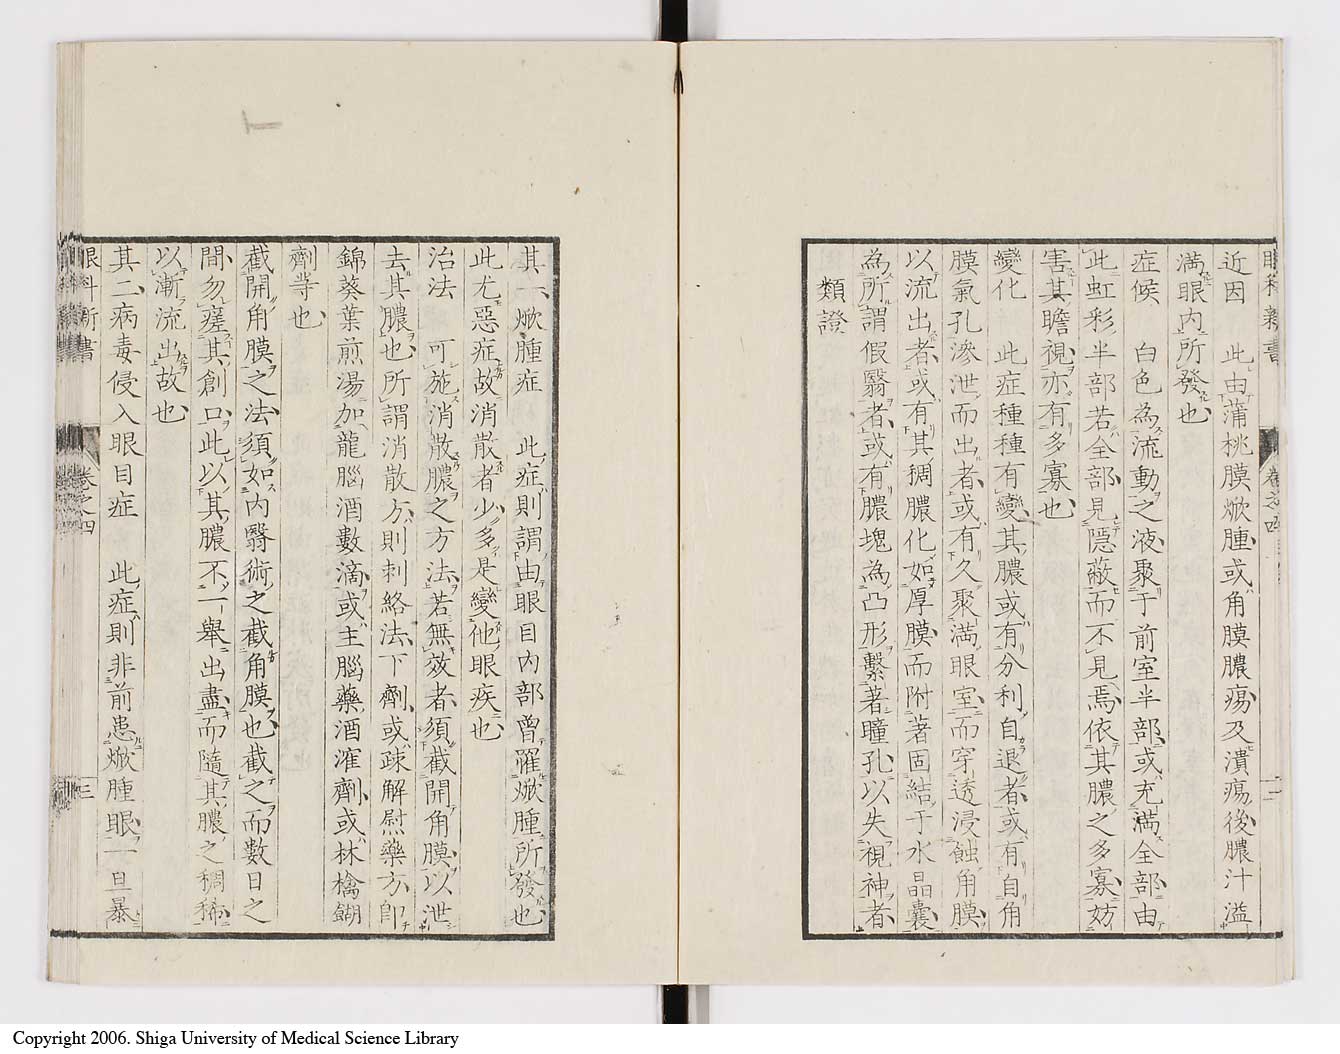 眼科新書
卷之四
二
近因 此由蒲桃膜焮腫或角膜膿瘍及潰瘍後膿汁溢
滿眼內所發也
症候 白色為流動之液聚于前室半部或充滿全部由
此虹彩半部若全部見隱蔽而不見焉依其膿之多寡妨
害其瞻視亦有多寡也
變化 此症種種有變其膿或有分利自退者或有自角
膜氣孔滲泄而出者或有久聚滿眼室而穿透浸蝕角膜
以流出者或有其稠膿化如厚膜而附著固結于水晶囊
為所謂假翳者或有膿塊為凸形繫著瞳孔以失視神者
類證
其一焮腫症 此症則謂由眼目內部曾罹焮腫所發也
此尤惡症故消散者少多是變他眼疾也
治法 可施消散膿之方法若無效者須截開角膜以泄
去其膿也所謂消散方則刺絡法下劑或疎解熨藥方卽
錦葵葉煎湯加龍腦酒數滴或主腦藥酒滛劑或林檎餬
劑等也
截開角膜之法須如內翳術之截角膜也截之而數日之
間勿瘥其創口此以其膿不一舉出盡而隨其膿之稠稀
以漸流出故也
其二病毒侵入眼目症 此症則非前患焮腫眼一旦暴
眼科新書
卷之四
三
Copyright 2006. Shiga University of Medical Science Library